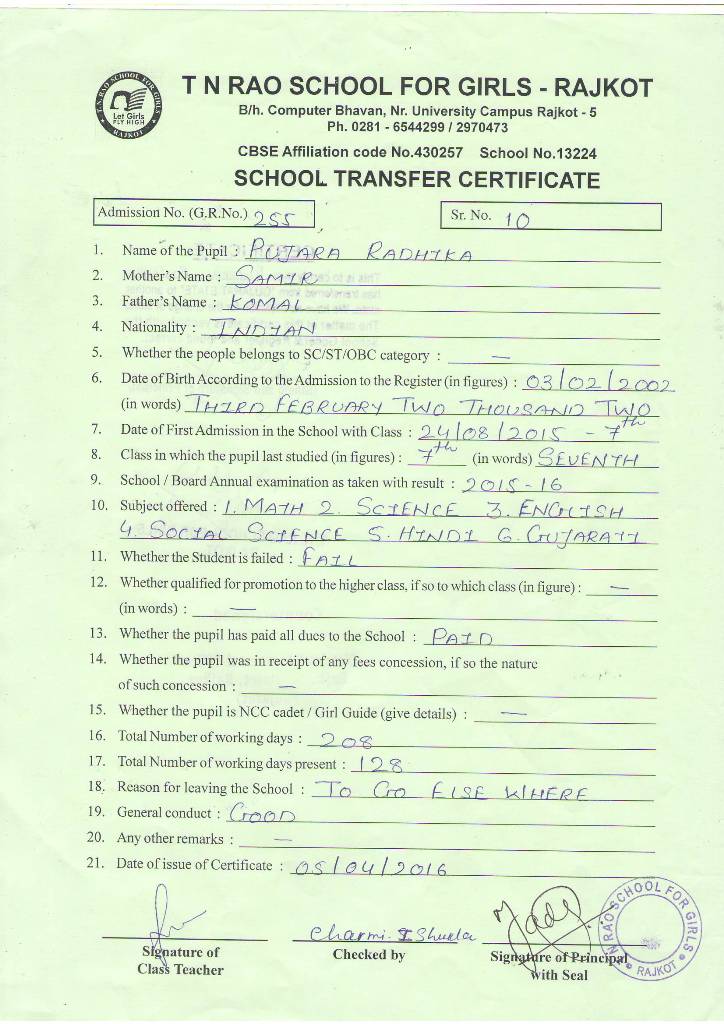 T N RAO SCHOOL FOR GIRLS - RAJKOT
T.N.RAO SCHOOL FOR GIRLS
Let Girls
FLY HIGH
RAJKOT
B/h. Computer Bhavan, Nr. University Campus Rajkot - 5
Ph. 0281 - 6544299 / 2970473
CBSE Affiliation code No.430257 School No.13224
SCHOOL TRANSFER CERTIFICATE
Admission No. (G.R.No.) 255 Sr. No. 10
1. Name of the Pupil : PUJARA RADHIKA
2. Mother's Name : SAMIR
3. Father's Name : KOMAL
4. Nationality : INDIAN
5. Whether the people belongs to SC/ST/OBC category : —
6. Date of Birth According to the Admission to the Register (in figures) : 03/02/2002
(in words) THIRD FEBRUARY TWO THOUSAND TWO
7. Date of First Admission in the School with Class : 24/08/2015 - 7th
8. Class in which the pupil last studied (in figures) : 7th (in words) SEVENTH
9. School / Board Annual examination as taken with result : 2015-16
10. Subject offered : 1. MATH 2. SCIENCE 3. ENGLISH
4. SOCIAL SCIENCE 5. HINDI 6. GUJARATI
11. Whether the Student is failed : FAIL
12. Whether qualified for promotion to the higher class, if so to which class (in figure) : —
(in words) : —
13. Whether the pupil has paid all dues to the School : PAID
14. Whether the pupil was in receipt of any fees concession, if so the nature
of such concession : —
15. Whether the pupil is NCC cadet / Girl Guide (give details) : —
16. Total Number of working days : 208
17. Total Number of working days present : 128
18. Reason for leaving the School : TO GO ELSE WHERE
19. General conduct : GOOD
20. Any other remarks : —
21. Date of issue of Certificate : 05/04/2016
Charmi. I Shukla
Signature of
Class Teacher
Checked by
Signature of Principal
with Seal
N RAO SCHOOL FOR GIRLS
RAJKOT